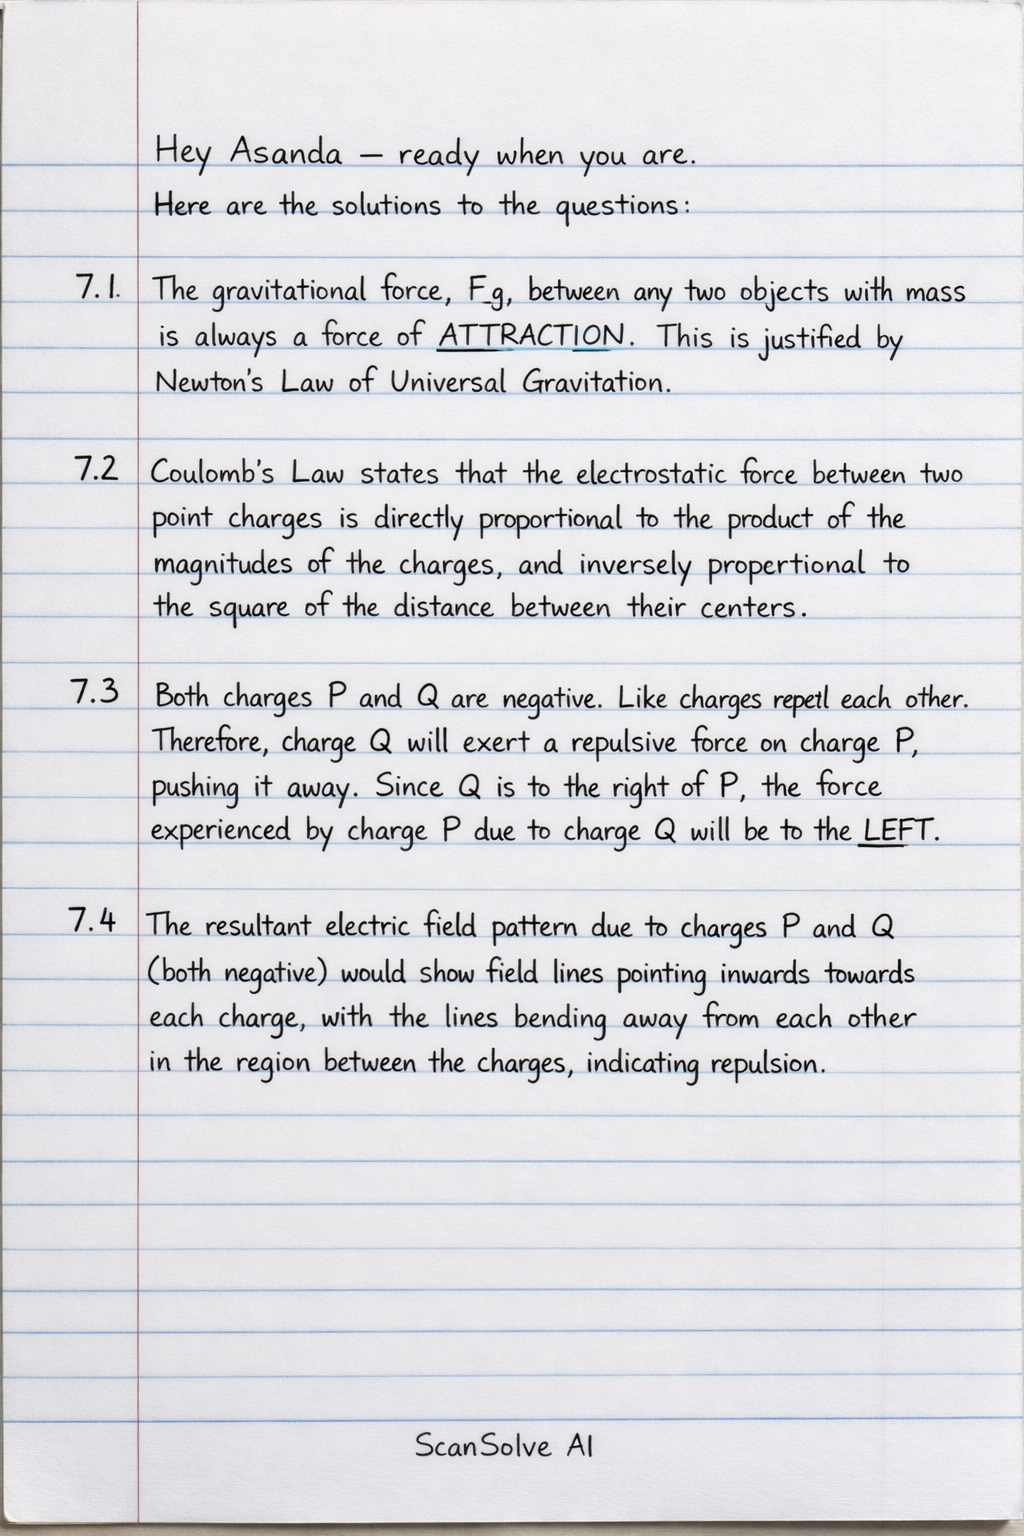 Hey Asanda – ready when you are.
Here are the solutions to the questions:
7.1. The gravitational force, F_g, between any two objects with mass
is always a force of ATTRACTION. This is justified by
Newton's Law of Universal Gravitation.
7.2 Coulomb's Law states that the electrostatic force between two
point charges is directly proportional to the product of the
magnitudes of the charges, and inversely propertional to
the square of the distance between their centers.
7.3 Both charges P and Q are negative. Like charges repetl each other.
Therefore, charge Q will exert a repulsive force on charge P,
pushing it away. Since Q is to the right of P, the force
experienced by charge P due to charge Q will be to the LEFT.
7.4 The resultant electric field pattern due to charges P and Q
(both negative) would show field lines pointing inwards towards
each charge, with the lines bending away from each other
in the region between the charges, indicating repulsion.
ScanSolve AI